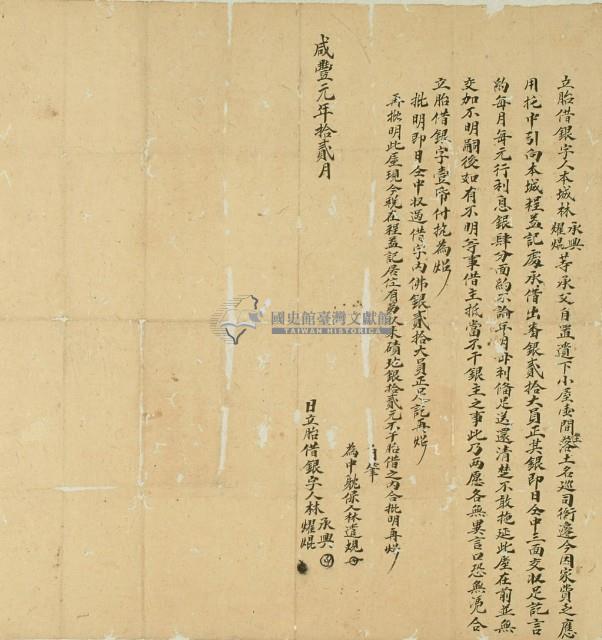 立胎借銀字人本城林承興耀焜等承父自置遺下小屋壹間落坐土名巡司衙邊今因家費乏應
用托中引向本城程益記處承借出番銀貳拾大員正其銀即日仝中三面交收足訖言
約每月每元行利息銀肆分面約不論年內母利俻足送還清楚不敢拖延此屋在前並無
交加不明嗣後如有不明等事借主抵當不干銀主之事此乃両愿各無異言口恐無凴合
立胎借銀字壹帋付执為炤
批明即日仝中収過借字內佛銀貳拾大員正足訖再炤
再批明此屋現今稅在程益記居住有萬 末磧地銀拾貳元不干胎借之內合批明再炤
自筆
為中躭保人林遣規
咸豐元年拾貳月
日立胎借銀字人林承興耀焜
國史館臺灣文獻館
TAIWAN HISTORICA